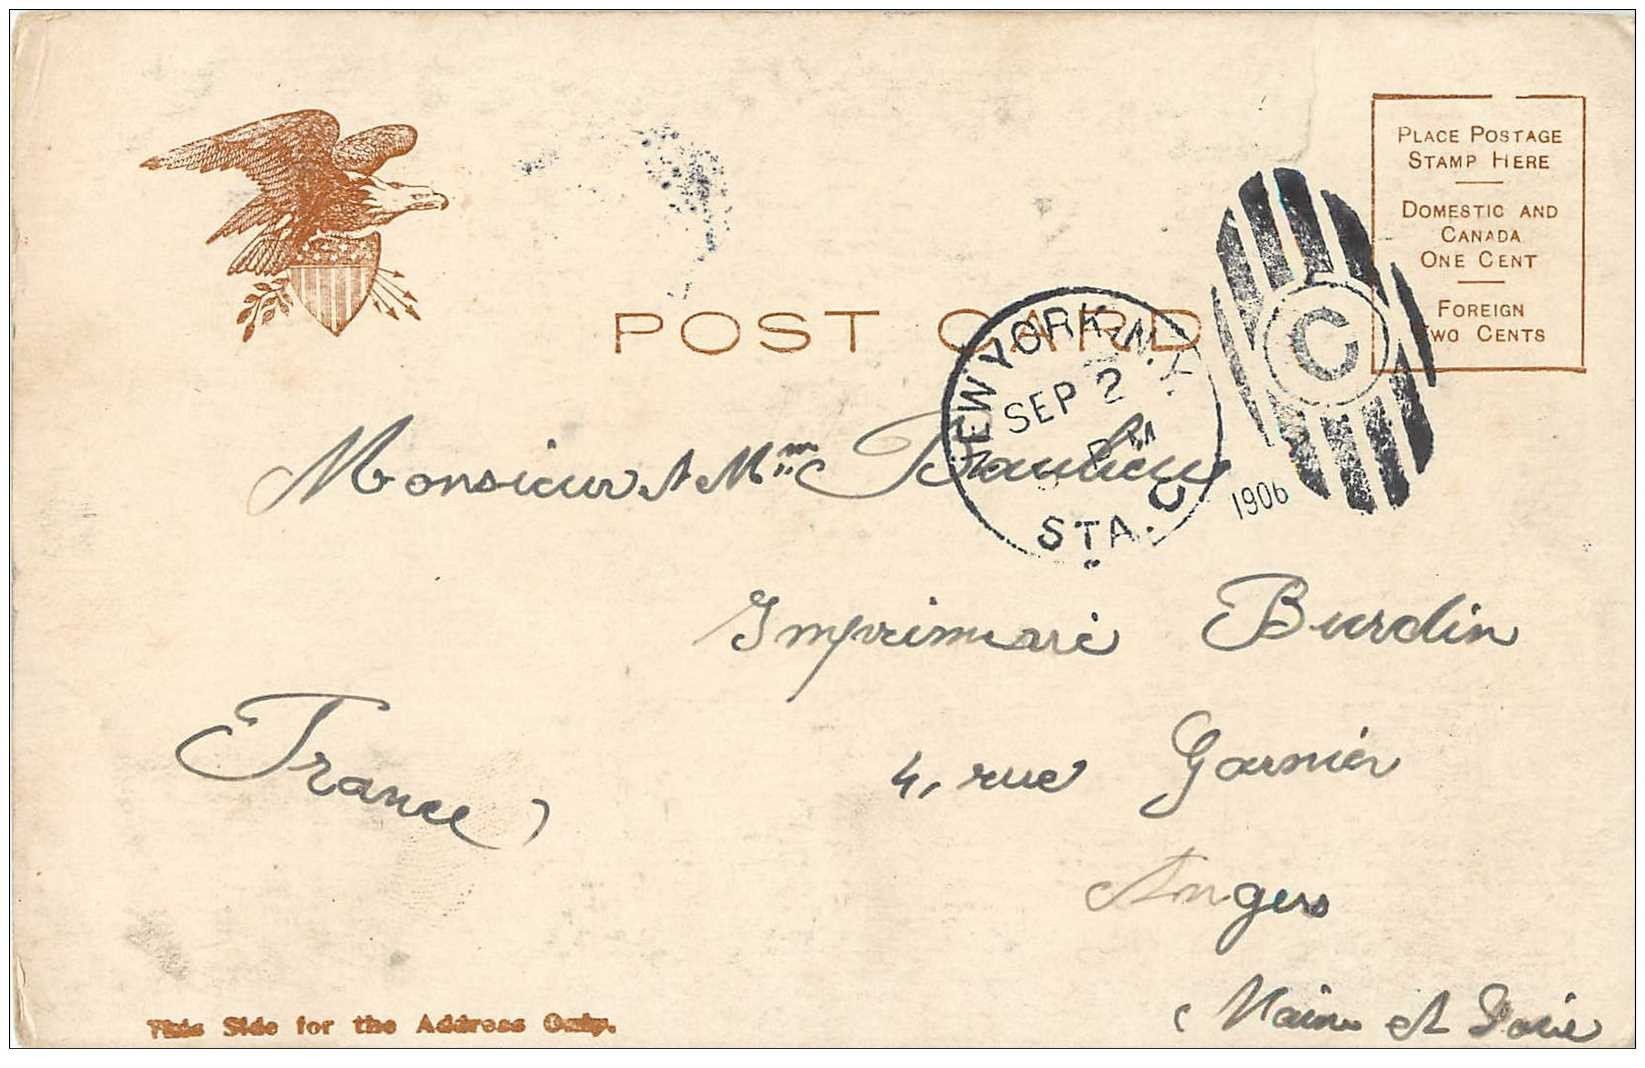 PLACE POSTAGE
STAMP HERE
DOMESTIC AND
CANADA
ONE CENT
FOREIGN
TWO CENTS
POST CARD
NEW YORK, N.Y.
SEP 2
PM
1906
STA. C
C
Monsieur et Mme Beaulieu
Imprimerie Burdin
4, rue Garnier
Angers
(Maine et Loire
France)
This Side for the Address Only.